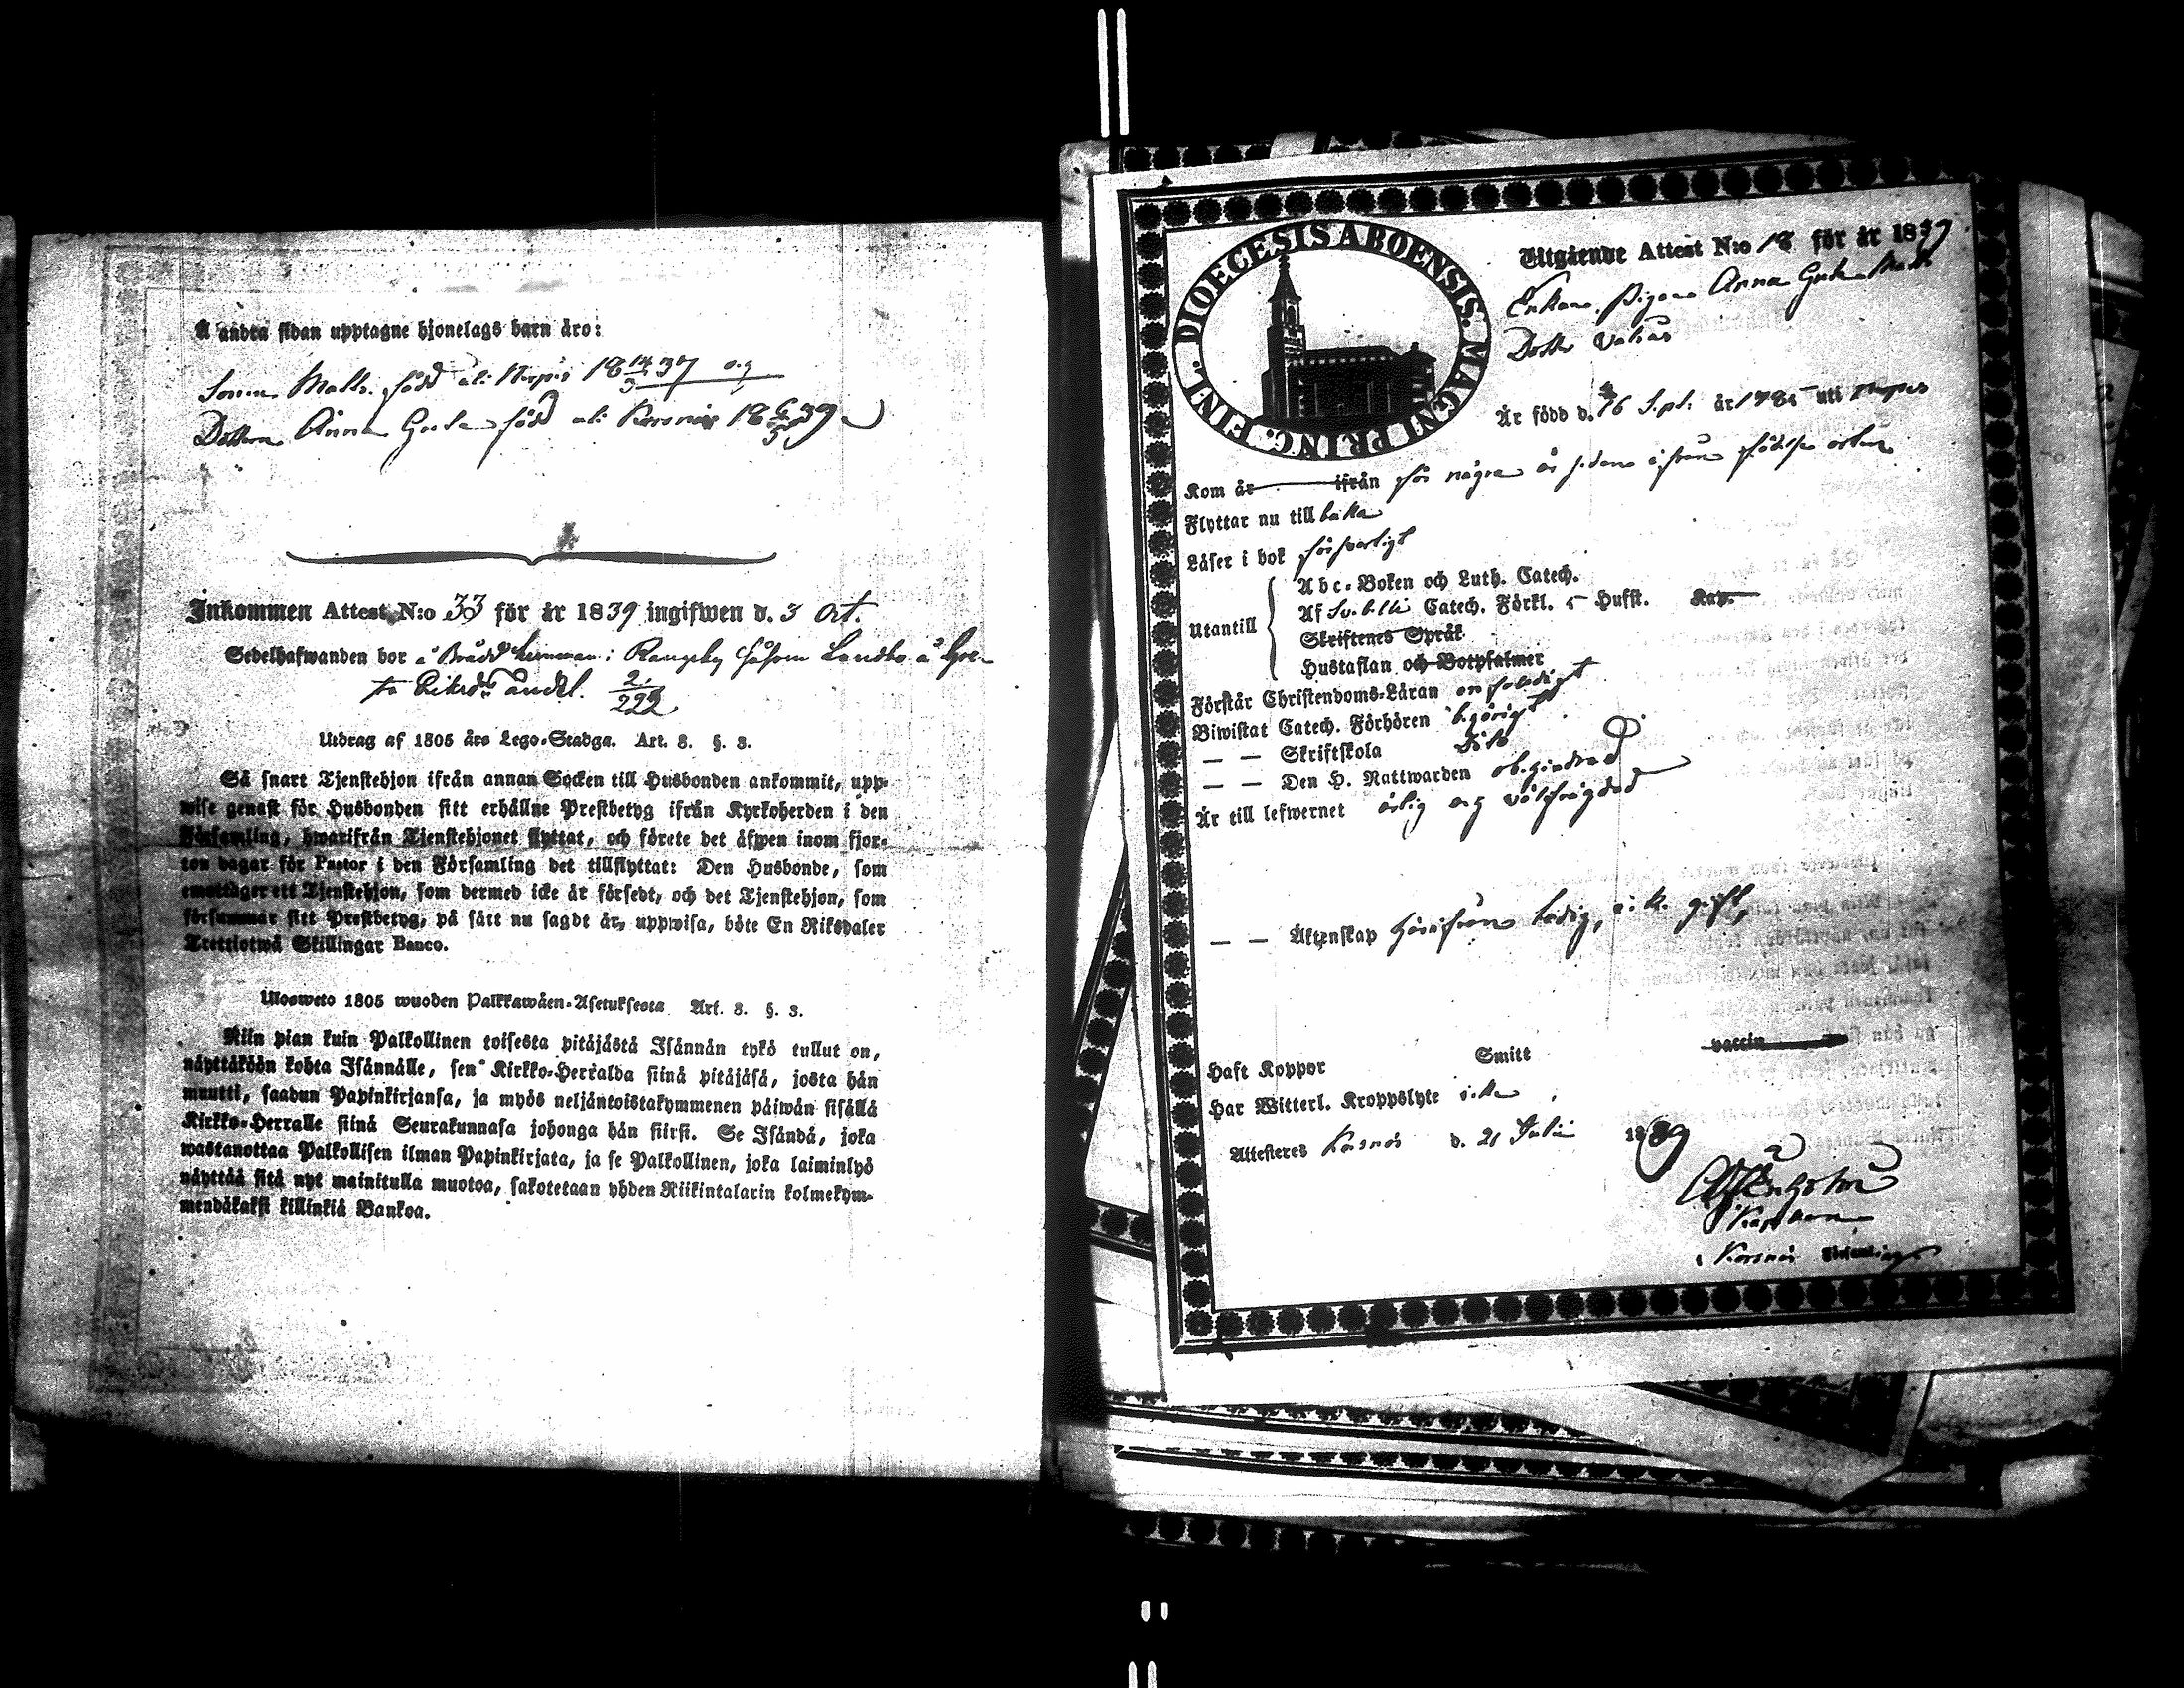 Å andra sidan upptagne hjonelags barn äro:
Sonen Matts född uti Närpes 18 14/3 37 og
Dottern Anna Greta född uti Korsnäs 18 6/5 39
Inkommen Attest N:o 33 för år 1839 ingifwen d. 3 Oct.
Sedelhafwanden bor å hemman i Rangsby såsom Landbo å
andel. 2/222
Utdrag af 1805 års Lego-Stadga. Art. 8. §. 3.
Så snart Tjenstehjon ifrån annan Socken till Husbonden ankommit, upp-
wise genast för Husbonden sitt erhållne Prestbetyg ifrån Kyrkoherden i den
Församling, hwarifrån Tjenstehjonet flyttat, och förete det äfwen inom fjor-
ton dagar för Pastor i den Församling det tillflyttat: Den Husbonde, som
emottager ett Tjenstehjon, som dermed icke är försedt, och det Tjenstehjon, som
försummar sitt Prestbetyg, på sätt nu sagdt är, uppwisa, böte En Riksdaler
Trettiotwå Skillingar Banco.
Ulosweto 1805 wuoden Palkkawäen-Asetuksesta Art. 8. §. 3.
Niin pian kuin Palkollinen toisesta pitäjästä Isännän tykö tullut on,
näyttäköön kohta Isännälle, sen Kirkko-Herralda siinä pitäjäsä, josta hän
muutti, saadun Papinkirjansa, ja myös neljäntoistakymmenen päiwän sisällä
Kirkko-Herralle siinä Seurakunnasa johonga hän siirsi. Se Isändä, joka
wastanottaa Palkollisen ilman Papinkirjata, ja se Palkollinen, joka laiminlyö
näyttää sitä nyt mainitulla muotoa, sakotetaan yhden Riikintalarin kolmekym-
mendäkaksi killinkiä Bankoa.
DIOECESIS ABOENSIS. MAGNI PRINC. FINL.
Utgående Attest N:o 18 för år 1839
Enkan Pigan Anna Greta Matts
Dotter
Är född d. 16 Sept. år 178 uti Närpes
Kom år ifrån för några år sedan ifrån födelse orten
Flyttar nu till baka
Läser i bok försvarligt
Utantill
Abc-Boken och Luth. Catech.
Af Catech. Förkl. 5 Hufst. Kap.
Skriftenes Språk
Hustaflan och Botpsalmer
Förstår Christendoms-Läran enfaldigt
Biwistat Catech. Förhören behörigt
— — Skriftskola Dito
— — Den H. Nattwarden obehindrad
Är till lefwernet ärlig och välfrägdad
— — Äktenskap härifrån ledig, icke gift,
Haft Koppor Smitt vaccin
Har Witterl. Kroppslyte icke
Attesteres Korsnäs d. 21 Julii 1839
Kapellan
i Korsnäs Församling